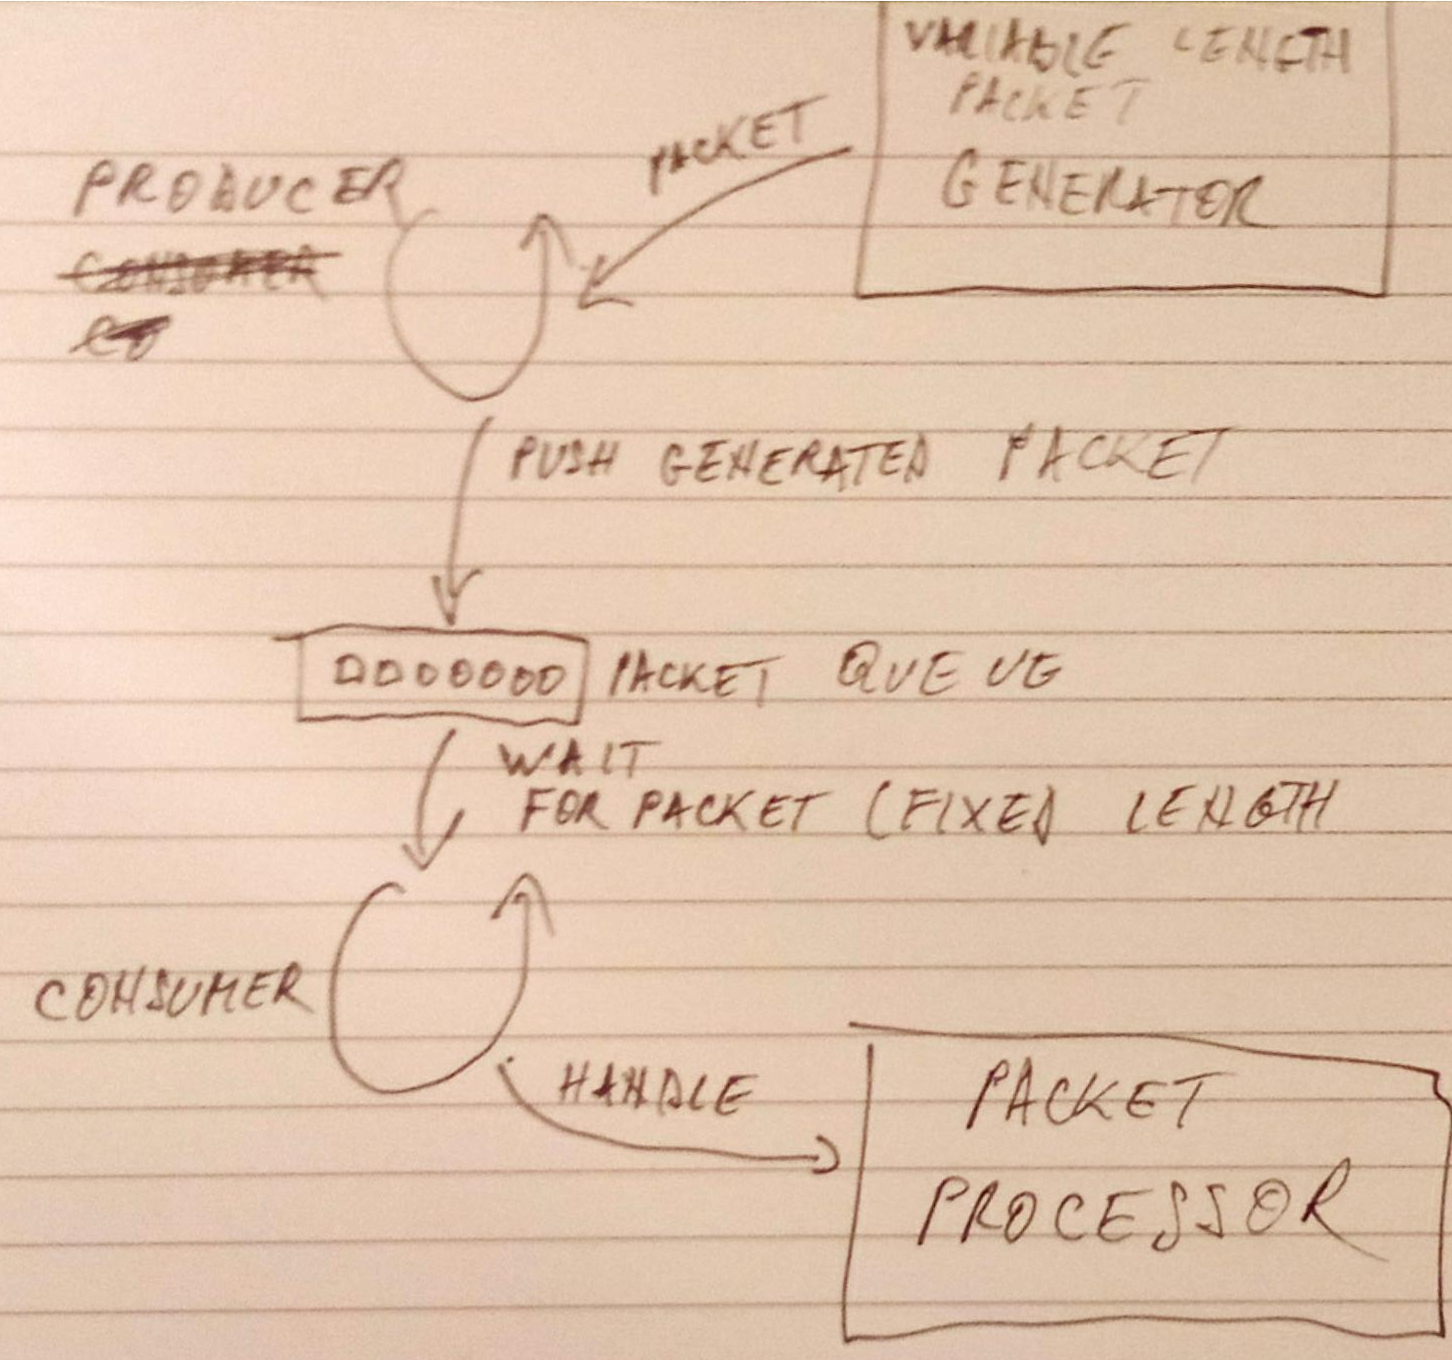 VARIABLE LENGTH
PACKET
GENERATOR
PACKET
PRODUCER
CONSUMER
CO
PUSH GENERATED PACKET
PACKET QUEUE
WAIT
FOR PACKET (FIXED LENGTH
CONSUMER
HANDLE
PACKET
PROCESSOR